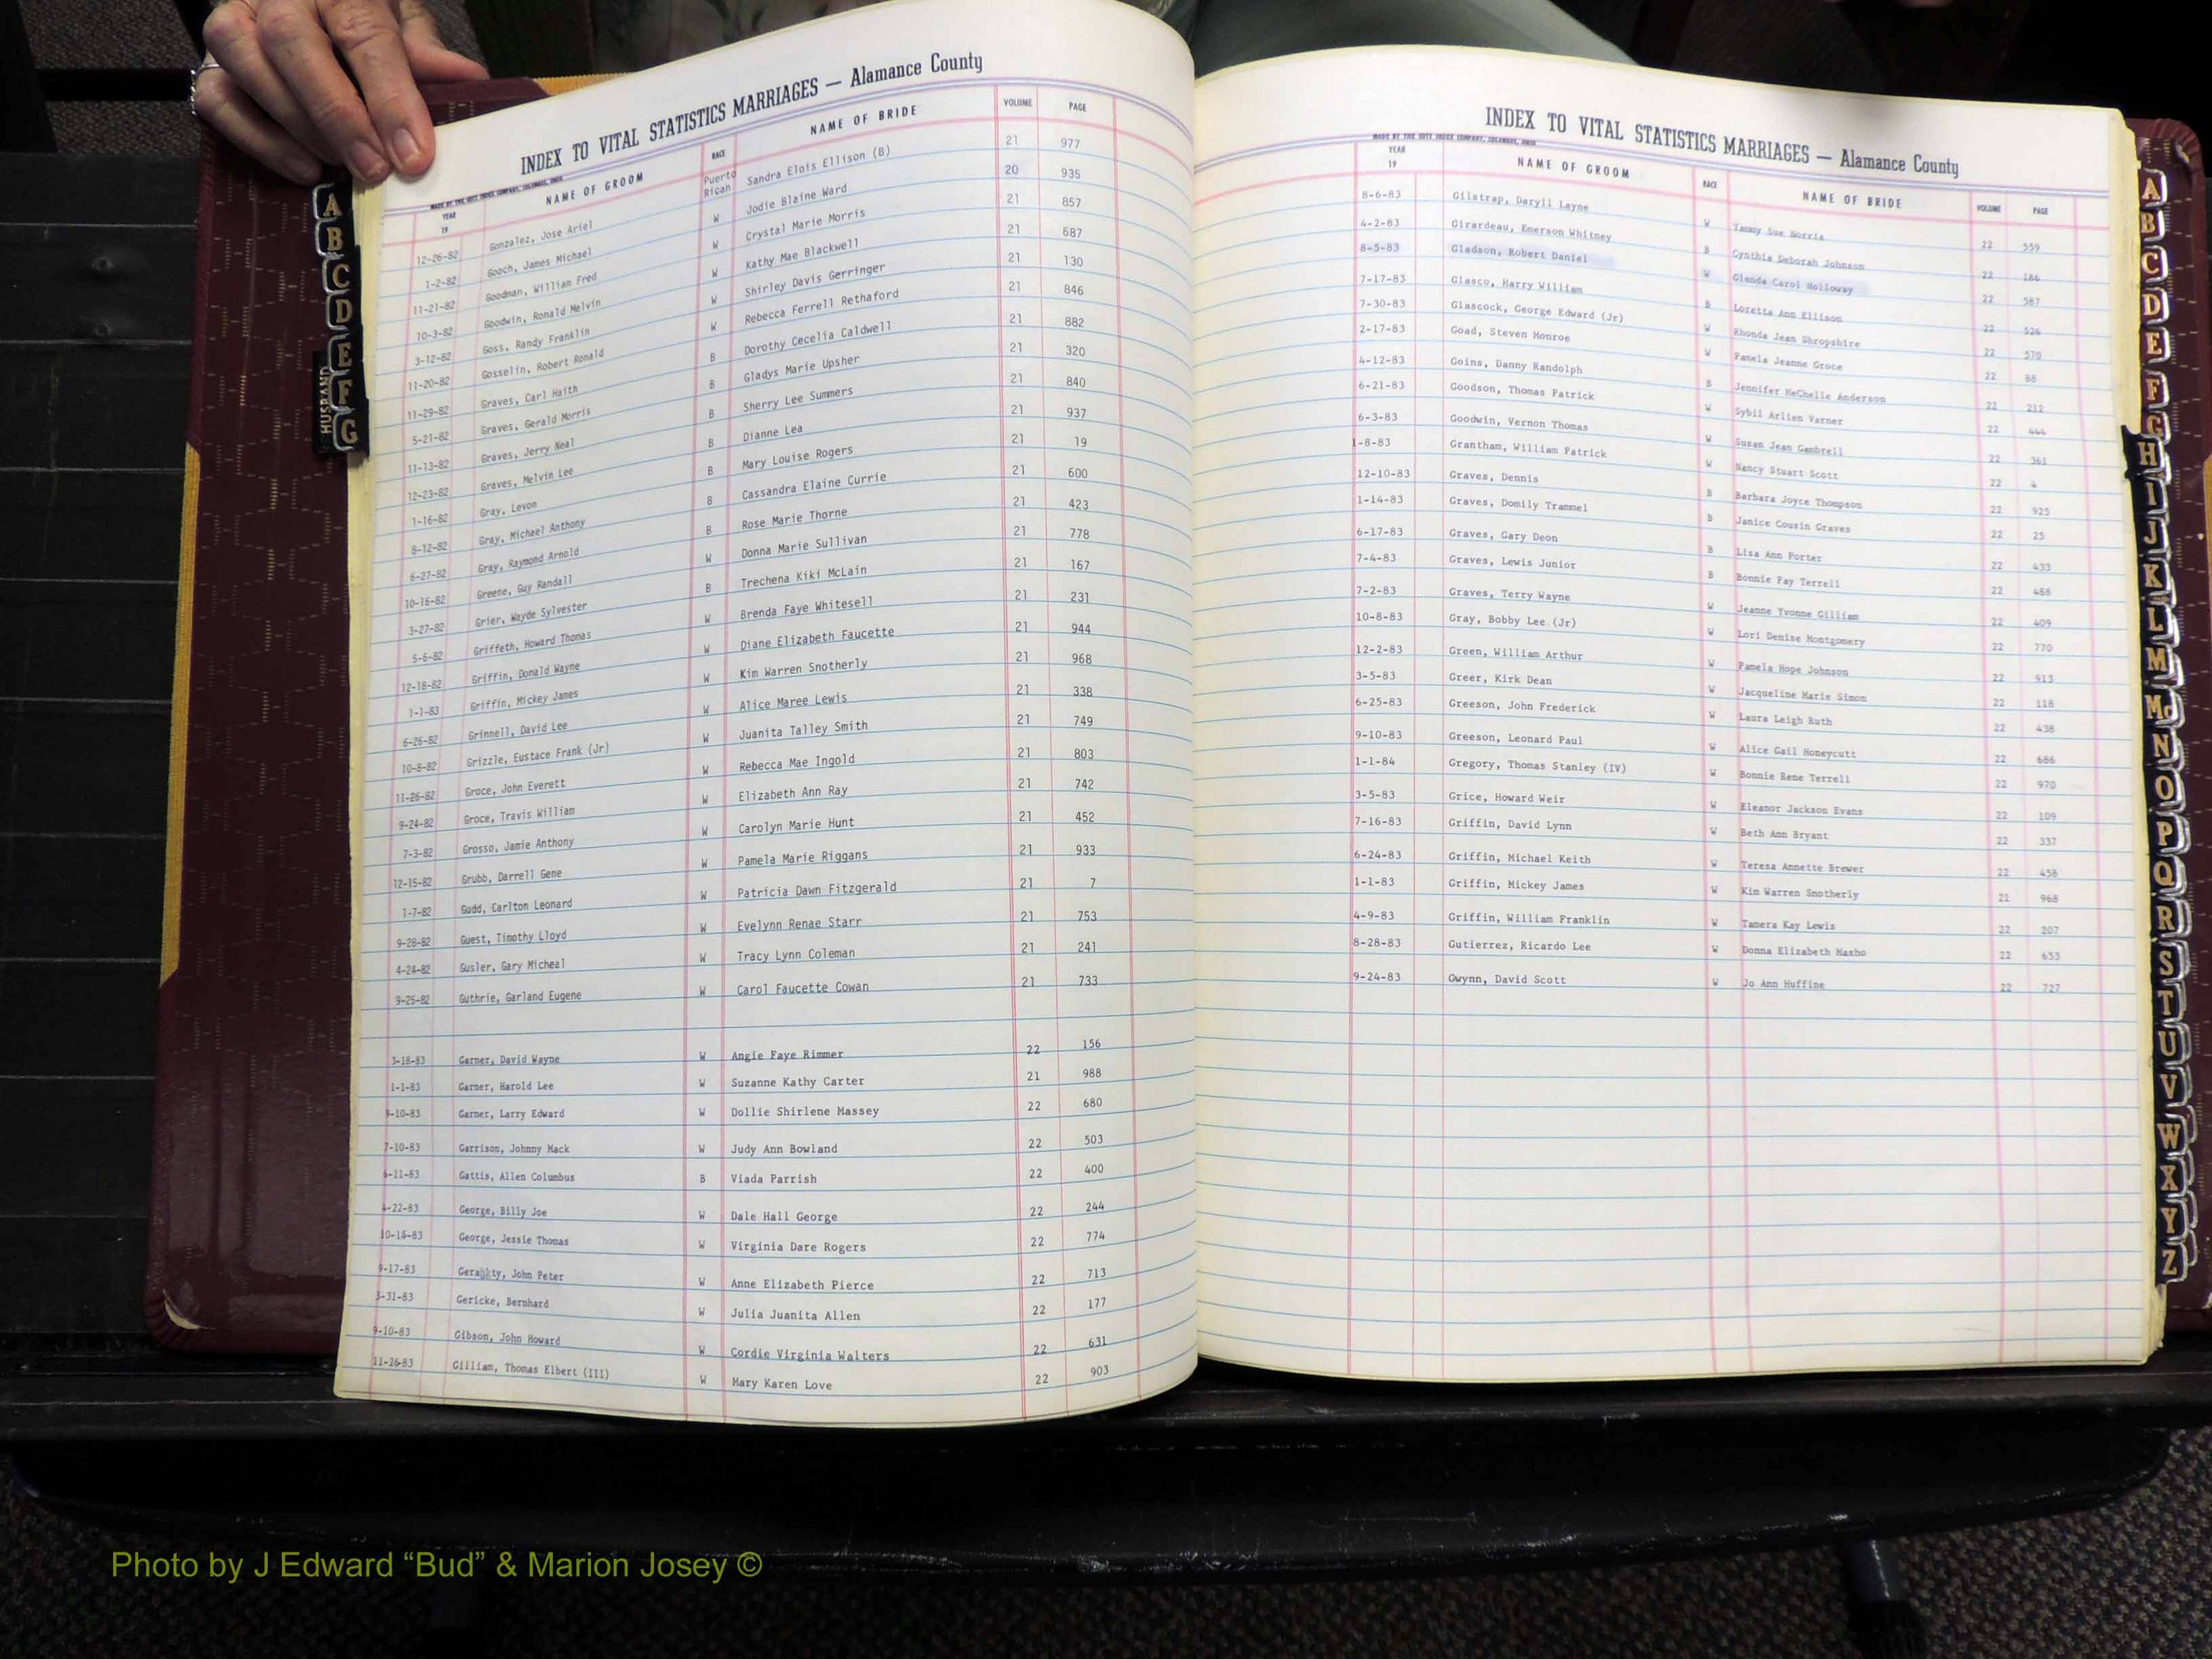 INDEX TO VITAL STATISTICS MARRIAGES — Alamance County
YEAR 19 NAME OF GROOM RACE NAME OF BRIDE VOLUME PAGE
12-26-82 Gonzalez, Jose Ariel Puerto Rican Sandra Elois Ellison (B) 21 977
1-2-82 Gooch, James Michael W Jodie Blaine Ward 20 935
11-21-82 Goodman, William Fred W Crystal Marie Morris 21 857
10-3-82 Goodwin, Ronald Melvin W Kathy Mae Blackwell 21 687
3-12-82 Goss, Randy Franklin W Shirley Davis Gerringer 21 130
11-20-82 Gosselin, Robert Ronald W Rebecca Ferrell Rethaford 21 846
11-29-82 Graves, Carl Haith B Dorothy Cecelia Caldwell 21 882
5-21-82 Graves, Gerald Morris B Gladys Marie Upsher 21 320
11-13-82 Graves, Jerry Neal B Sherry Lee Summers 21 840
12-23-82 Graves, Melvin Lee B Dianne Lea 21 937
1-16-82 Gray, Levon B Mary Louise Rogers 21 19
8-12-82 Gray, Michael Anthony B Cassandra Elaine Currie 21 600
6-27-82 Gray, Raymond Arnold B Rose Marie Thorne 21 423
10-16-82 Greene, Guy Randall W Donna Marie Sullivan 21 778
3-27-82 Grier, Wayde Sylvester B Trechena Kiki McLain 21 167
5-6-82 Griffeth, Howard Thomas W Brenda Faye Whitesell 21 231
12-18-82 Griffin, Donald Wayne W Diane Elizabeth Faucette 21 944
1-1-83 Griffin, Mickey James W Kim Warren Snotherly 21 968
6-26-82 Grinnell, David Lee W Alice Maree Lewis 21 338
10-8-82 Grizzle, Eustace Frank (Jr) W Juanita Talley Smith 21 749
11-26-82 Groce, John Everett W Rebecca Mae Ingold 21 803
9-24-82 Groce, Travis William W Elizabeth Ann Ray 21 742
7-3-82 Grosso, Jamie Anthony W Carolyn Marie Hunt 21 452
12-15-82 Grubb, Darrell Gene W Pamela Marie Riggans 21 933
1-7-82 Gudd, Carlton Leonard W Patricia Dawn Fitzgerald 21 7
9-28-82 Guest, Timothy Lloyd W Evelynn Renae Starr 21 753
4-24-82 Gusler, Gary Micheal W Tracy Lynn Coleman 21 241
9-25-82 Guthrie, Garland Eugene W Carol Faucette Cowan 21 733
3-18-83 Garner, David Wayne W Angie Faye Rimmer 22 156
1-1-83 Garner, Harold Lee W Suzanne Kathy Carter 21 988
9-10-83 Garner, Larry Edward W Dollie Shirlene Massey 22 680
7-10-83 Garrison, Johnny Mack W Judy Ann Bowland 22 503
6-11-83 Gattis, Allen Columbus B Viada Parrish 22 400
4-22-83 George, Billy Joe W Dale Hall George 22 244
10-14-83 George, Jessie Thomas W Virginia Dare Rogers 22 774
9-17-83 Geraghty, John Peter W Anne Elizabeth Pierce 22 713
3-31-83 Gericke, Bernhard W Julia Juanita Allen 22 177
9-10-83 Gibson, John Howard W Cordie Virginia Walters 22 631
11-26-83 Gilliam, Thomas Elbert (III) W Mary Karen Love 22 903
INDEX TO VITAL STATISTICS MARRIAGES — Alamance County
YEAR 19 NAME OF GROOM RACE NAME OF BRIDE VOLUME PAGE
8-6-83 Gilstrap, Daryll Layne W Tammy Sue Norris 22 559
4-2-83 Girardeau, Emerson Whitney B Cynthia Deborah Johnson 22 186
8-5-83 Gladson, Robert Daniel W Glenda Carol Holloway 22 587
7-17-83 Glasco, Harry William B Loretta Ann Ellison 22 526
7-30-83 Glascock, George Edward (Jr) W Rhonda Jean Shropshire 22 570
2-17-83 Goad, Steven Monroe W Pamela Jeanne Groce 22 68
4-12-83 Goins, Danny Randolph B Jennifer McChelle Anderson 22 212
6-21-83 Goodson, Thomas Patrick W Sybil Arlien Varner 22 444
6-3-83 Goodwin, Vernon Thomas W Susan Jean Gambrell 22 361
1-8-83 Grantham, William Patrick W Nancy Stuart Scott 22 4
12-10-83 Graves, Dennis B Barbara Joyce Thompson 22 925
1-14-83 Graves, Domily Trammel B Janice Cousin Graves 22 25
6-17-83 Graves, Gary Deon B Lisa Ann Porter 22 433
7-4-83 Graves, Lewis Junior B Bonnie Fay Terrell 22 488
7-2-83 Graves, Terry Wayne W Jeanne Yvonne Gilliam 22 409
10-8-83 Gray, Bobby Lee (Jr) W Lori Denise Montgomery 22 770
12-2-83 Green, William Arthur W Pamela Hope Johnson 22 913
3-5-83 Greer, Kirk Dean W Jacqueline Marie Simon 22 118
6-25-83 Greeson, John Frederick W Laura Leigh Ruth 22 438
9-10-83 Greeson, Leonard Paul W Alice Gail Honeycutt 22 686
1-1-84 Gregory, Thomas Stanley (IV) W Bonnie Rene Terrell 22 970
3-5-83 Grice, Howard Weir W Eleanor Jackson Evans 22 109
7-16-83 Griffin, David Lynn W Beth Ann Bryant 22 337
6-24-83 Griffin, Michael Keith W Teresa Annette Brewer 22 458
1-1-83 Griffin, Mickey James W Kim Warren Snotherly 21 968
4-9-83 Griffin, William Franklin W Tamera Kay Lewis 22 207
8-28-83 Gutierrez, Ricardo Lee W Donna Elizabeth Masho 22 653
9-24-83 Gwynn, David Scott W Jo Ann Huffine 22 727
HUSBAND
A
B
C
D
E
F
G
A
B
C
D
E
F
G
H
I
J
K
L
M
Mc
N
O
P
Q
R
S
T
U
V
W
X
Y
Z
Photo by J Edward “Bud” & Marion Josey ©